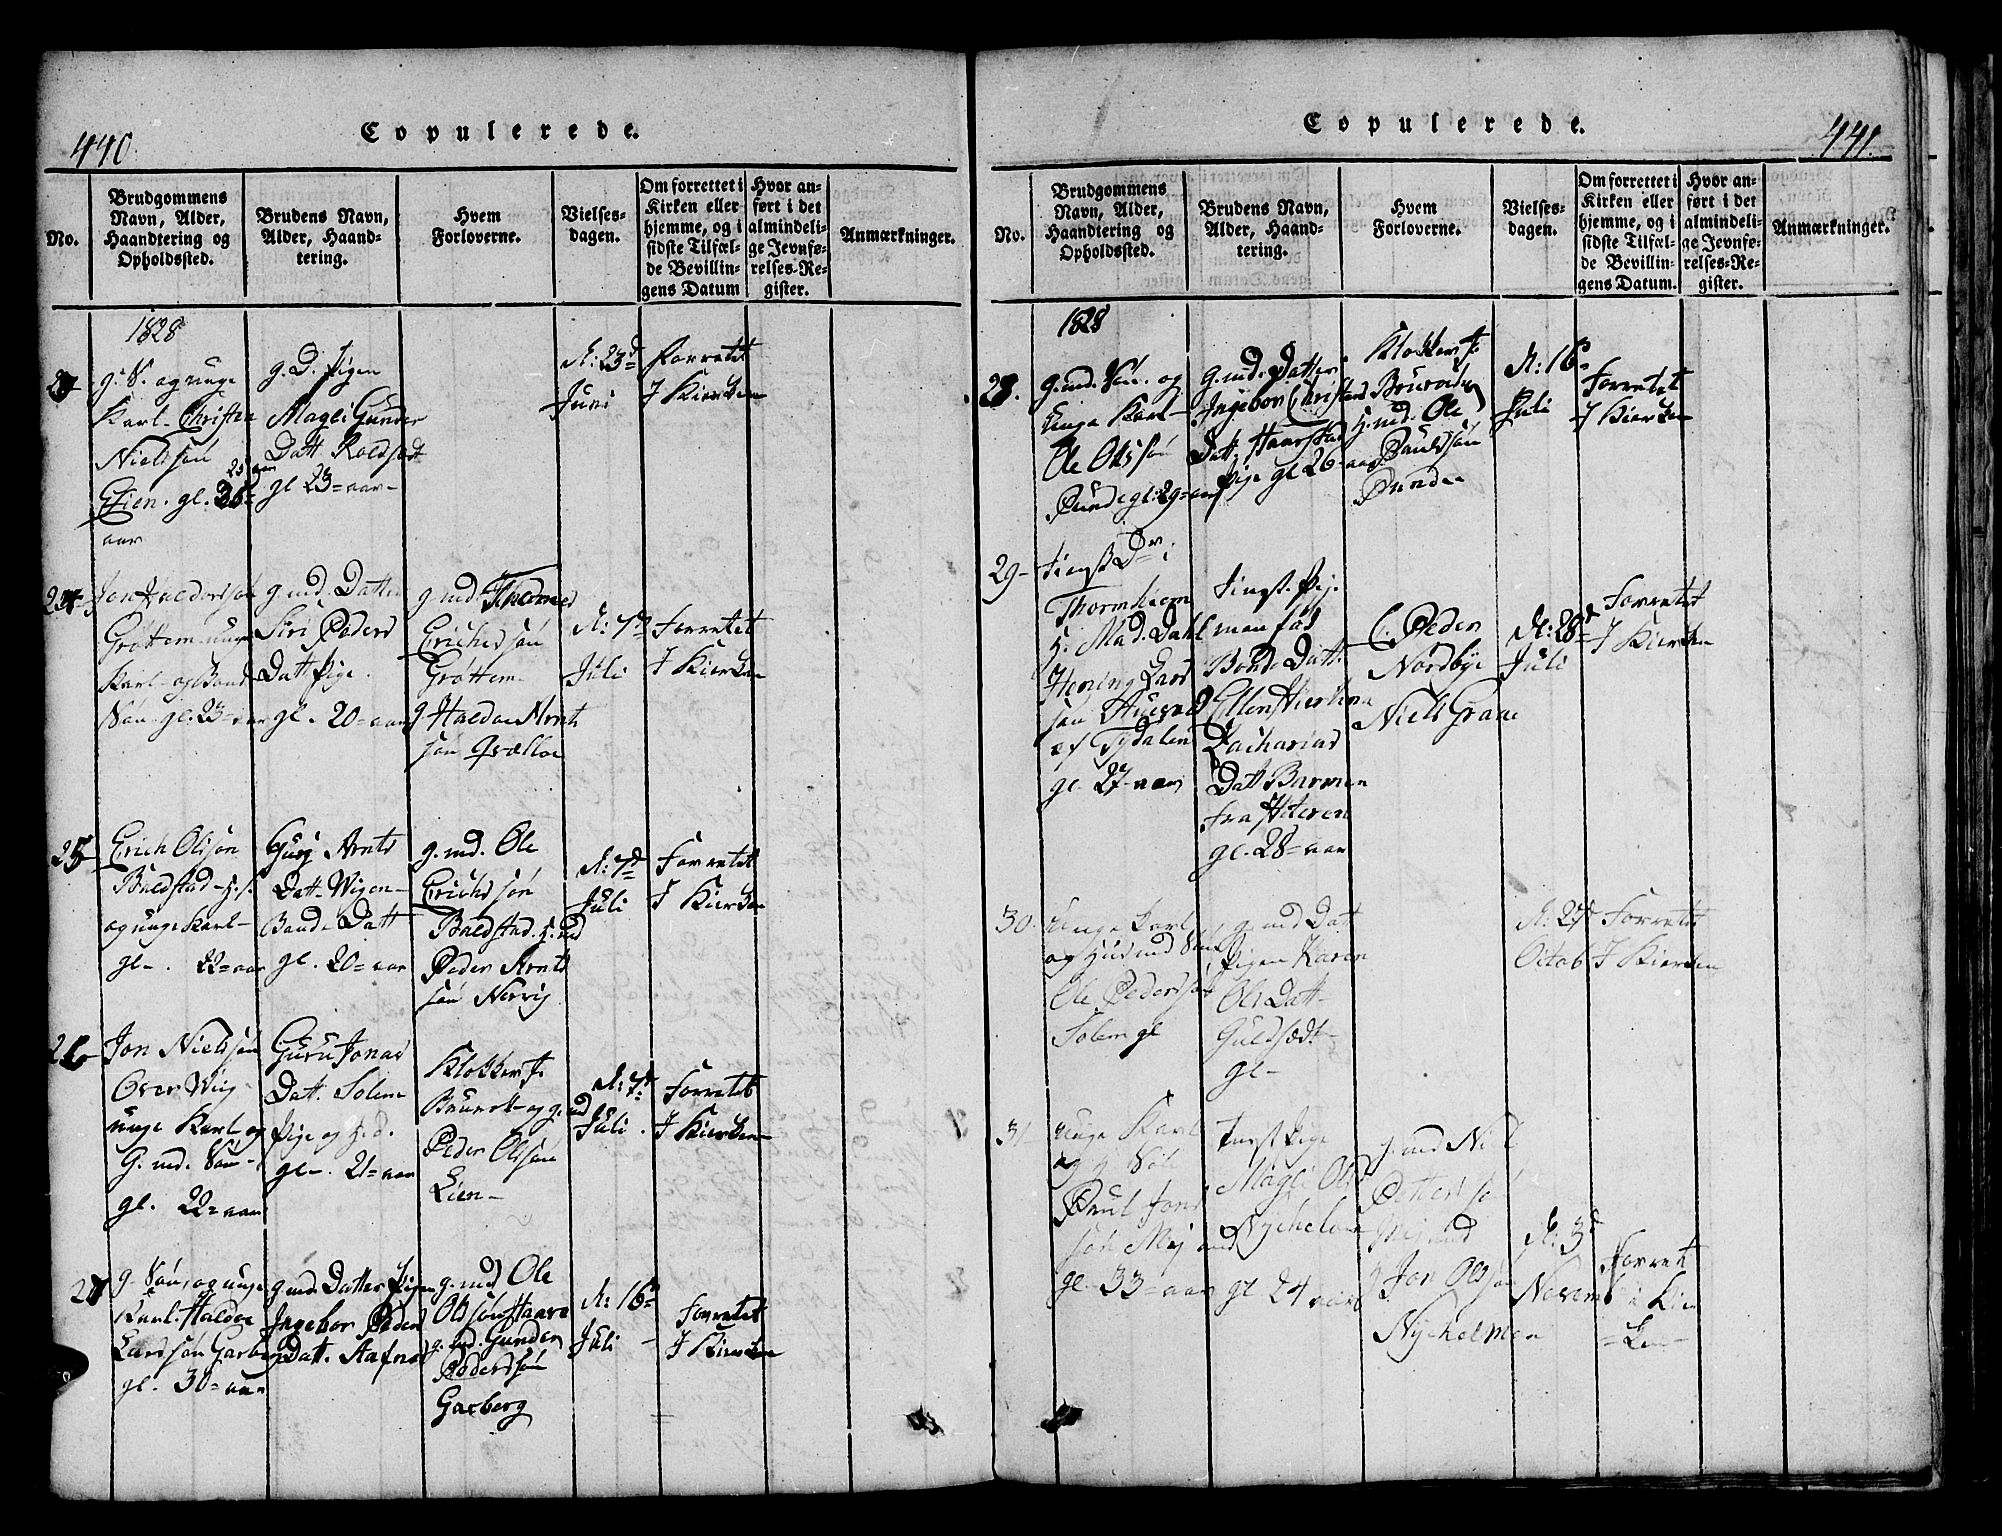 440.
Copulerede.
No.
Brudgommens
Navn, Alder,
Haandtering og
Opholdssted.
Brudens Navn,
Alder, Haand-
tering.
Hvem
Forloverne.
Vielses-
dagen.
Om forrettet i
Kirken eller
hjemme, og i
sidste Tilfæl-
de Bevillin-
gens Datum
Hvor an-
ført i det
almindeli-
ge Jevnfø-
relses-Re-
gister.
Anmærkninger.
1828
g. S. og unge
Karl Christen
Nielssøn
25 aar
Lien. gl.
aar
g. D. Pigen
Magli Gunder
Datt Roldset
gl 23 = aar-
N: 23d
Juni
Forretet
I Kierken
24
Jon Haldorssøn
Grøttem unge
Karl- og Bond
Søn. gl. 23 = aar
g md. Datter
Siri Peders
Datt Pige.
gl. 20 = aar
g md. Thomas
Erichssøn
Grøttem-
g Haldor Arnt
søn
N: 7d
Juli
Forretet
I Kierken
25
Erich Olssøn
Buldstad
og unge Karl-
gl-. 22 = aar
Guri Arnts
Datt. Wigen-
Bonde Datt
gl. 20 = aar
g. md. Ole
Erichssøn
Buldstad. g. md
Peder Arnts
søn Nervig
N: 7d
Juli
Forretet
I Kierken
26
Jon Nielssøn
Over Wig
unge Karl og
G. md. Søn-
gl. 22 = aar
Guru Jonas
Datt. Solem
Pige og g. d.
gl-. 21 = aar
Klokker J.
og g. md
Peder Olssøn
Lien-
N: 7d
Juli.
Forretet
I Kierken-
27
g. Søn, og unge
Karl. Haldor
Larssøn Garberg
gl. 30 = aar
g. md. Datter Pigen
Ingebor Peders
Datt. Aafnes
g. md Ole
Olssøn Haave
g. md. Gunder
Pederssøn
Garberg
N: 16d
Juli -
Forretet
I Kierken
441.
Copulerede.
No.
Brudgommens
Navn, Alder,
Haandtiering og
Opholdssted.
Brudens Navn,
Alder, Haand-
tering.
Hvem
Forloverne.
Vielses-
dagen.
Om forrettet i
Kirken eller
hjemme, og i
sidste Tilfæl-
de Bevillin-
gens Datum.
Hvor an-
ført i det
almindeli-
ge Jevnfø-
relses-Re-
gister.
Anmærkninger.
1828
28.
g. md. Søn. og
unge Karl-
Ole Olssøn
gl: 29 = aar
g. md. Datter
Ingebor Christens
Datt. Haarstad
Pige gl 26 = aar
Klokker J.
g. md. Ole
Paulssøn
N: 16d
Juli
Forretet
I Kierken
29-
Thornhiem
Hening Lars
søn
af Tydalen
gl- 27 - aar
Tienst. Pig.
Bonde Datt.
Ellen Kierstina
Zacharias
Datt Barmen
fra Hiteren
gl. 28 = aar
C. Peder
Nordbye
Niels Graae
N: 28d
Juli
Forretet
I Kierken
30.
unge Karl
og Huusmd Søn
Ole Pederssøn
Solem gl
g. md Dat
Pigen Karen
Ols Datt-
Guldsædt-
gl-
N: 27d
Octob
Forretet
I Kierken
31
unge Karl
og g Søn
Poul Jons
søn
gl- 33 = aar
Tienst Pige
Magli Ols
Nyhelmen
gl 24 aar
g md Niel
Petters sø
md
Jon Olssøn
Nyhelmen
N: 3d
Novemb
Forret
i Kier
= ken -